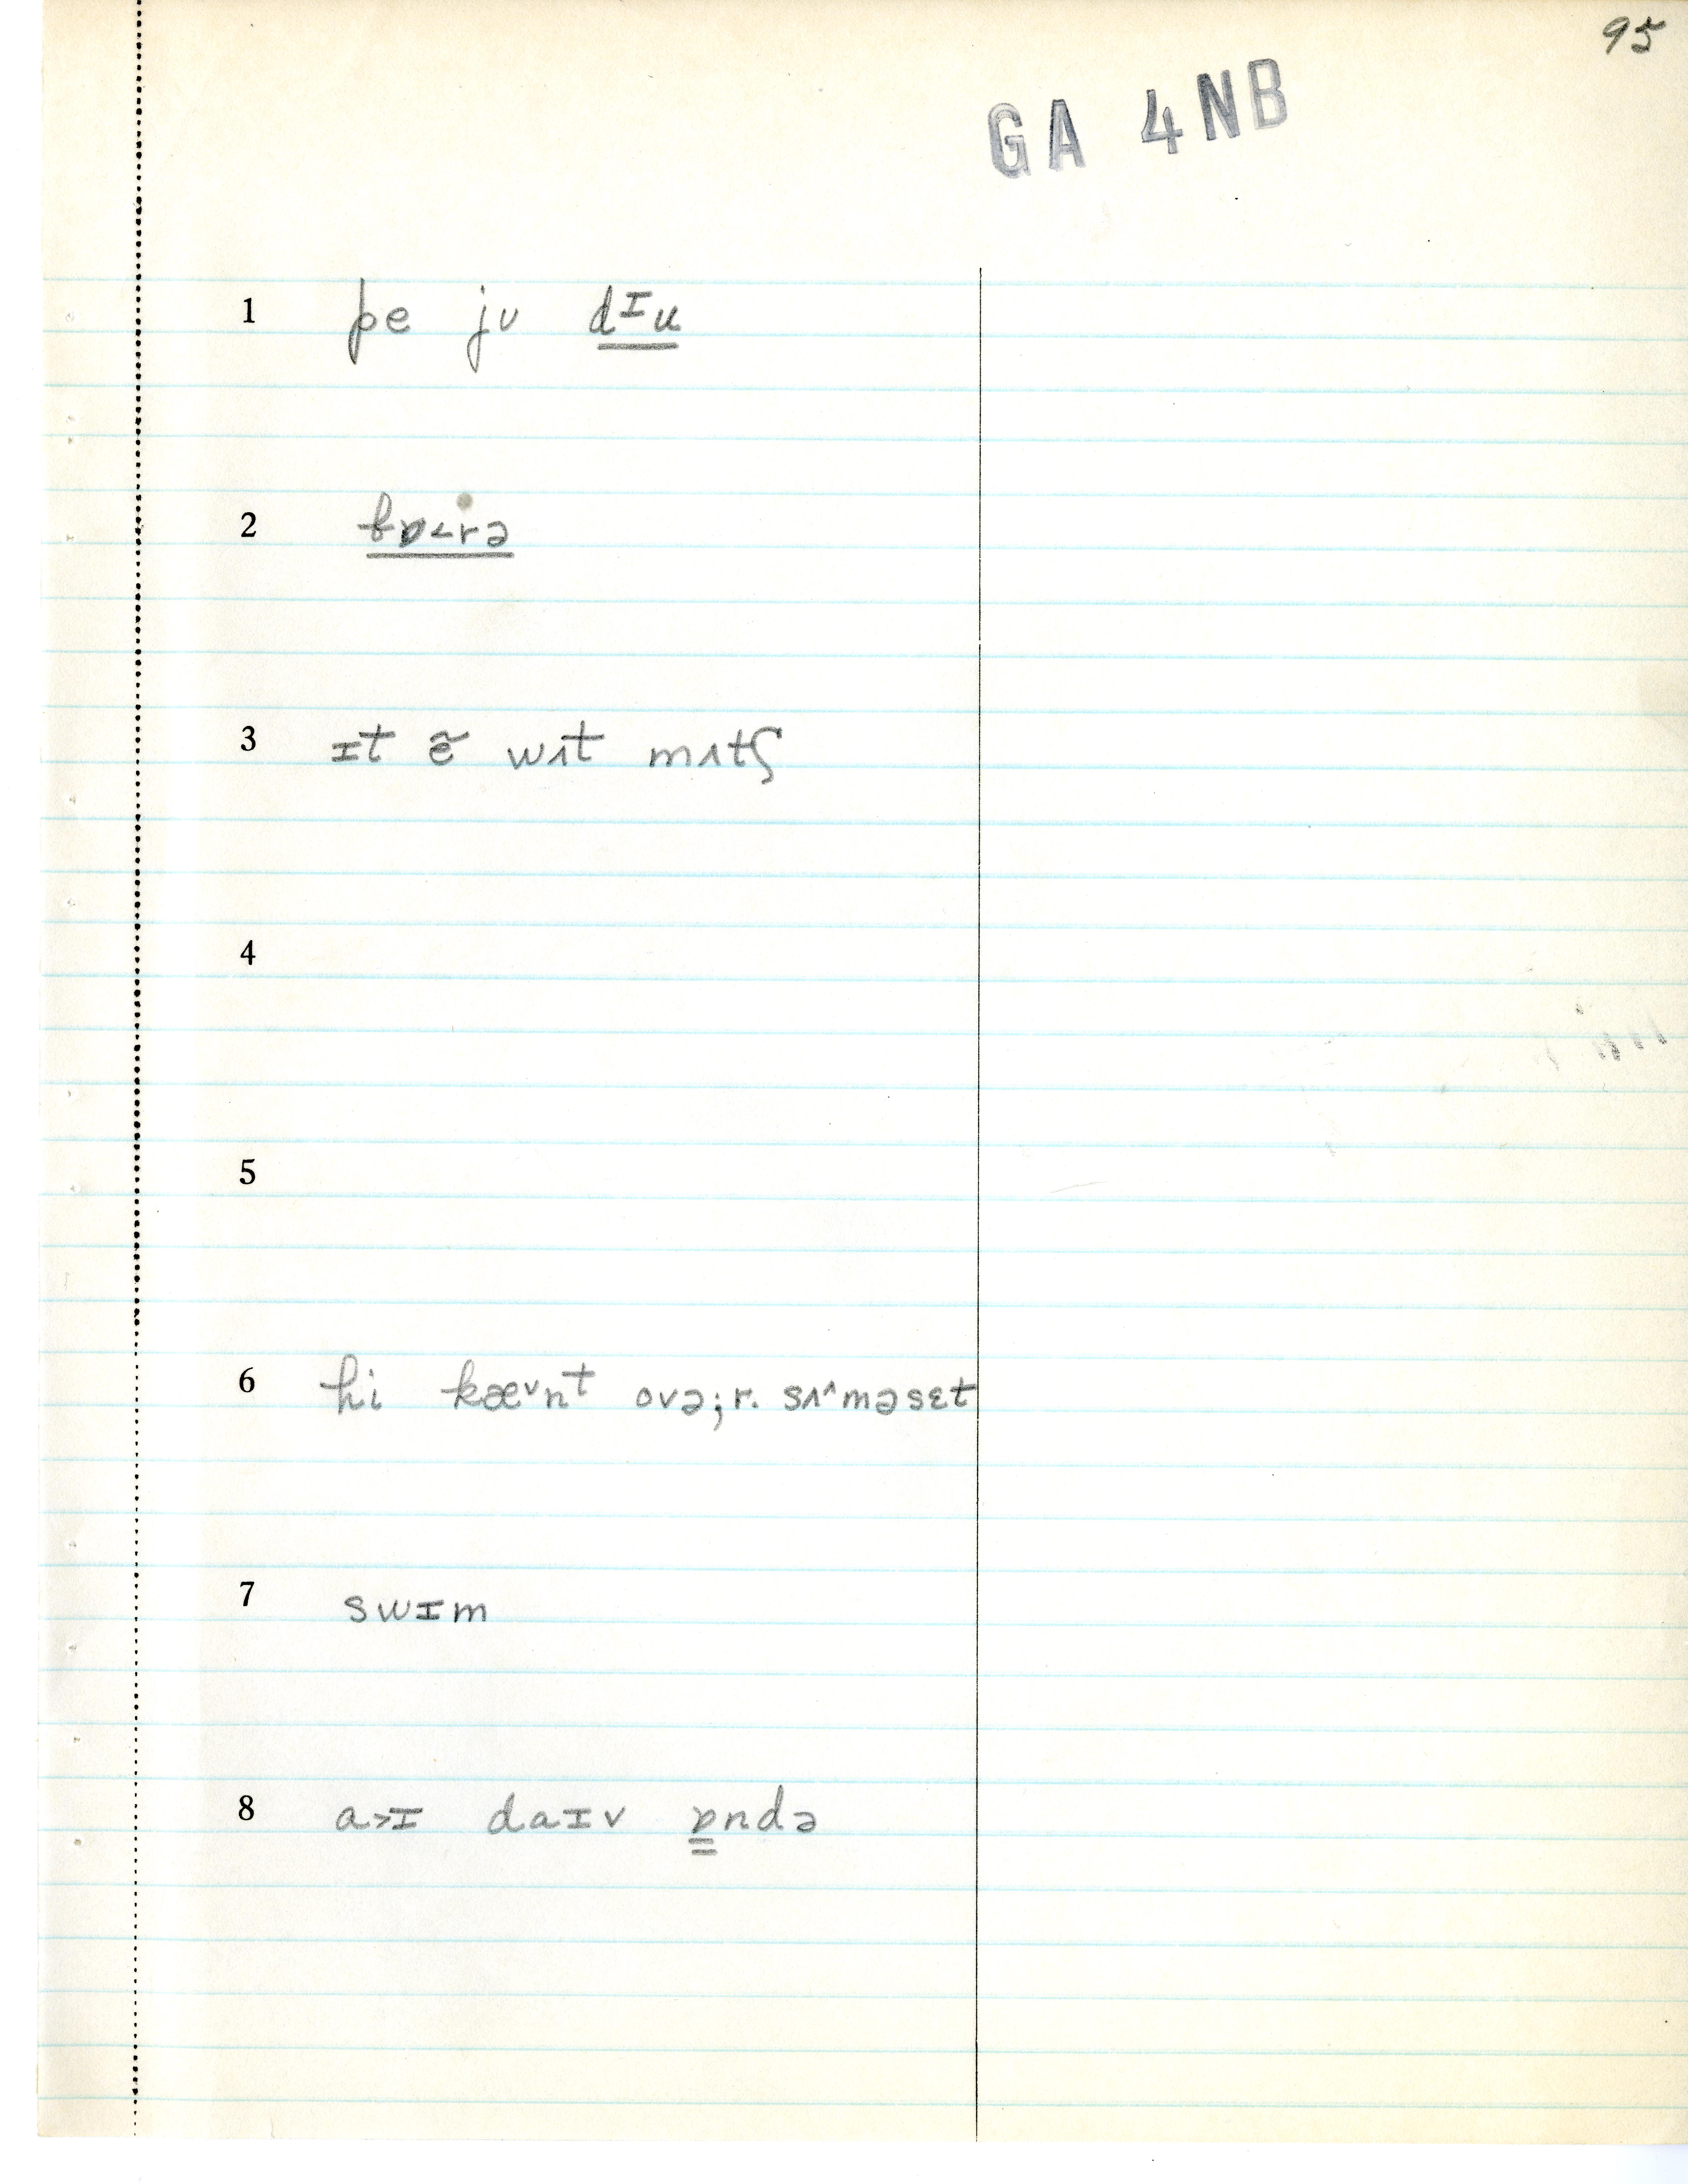 95
GA 4NB
1 pe jʊ dɪu
2 bɒ˂rə
3 ɪt ẽ wʌt mʌtʃ
4
5
6 hi kæ˅nt ovə;r. sʌ^məsɛt
7 swɪm
8 a˃ɪ daɪv ɒndə